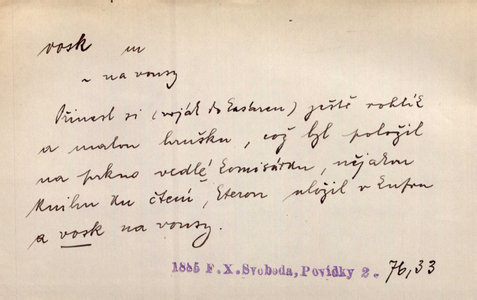 vosk m
~ na vousy
Přinesl si (voják do kasáren) ještě rohlík
a malou hrušku, což byl položil
na prkno vedle komisárku, nějakou
knihu ku čtení, kterou uložil v kufru
a vosk na vousy.
1885 F.X.Svoboda, Povídky 2. 76,33